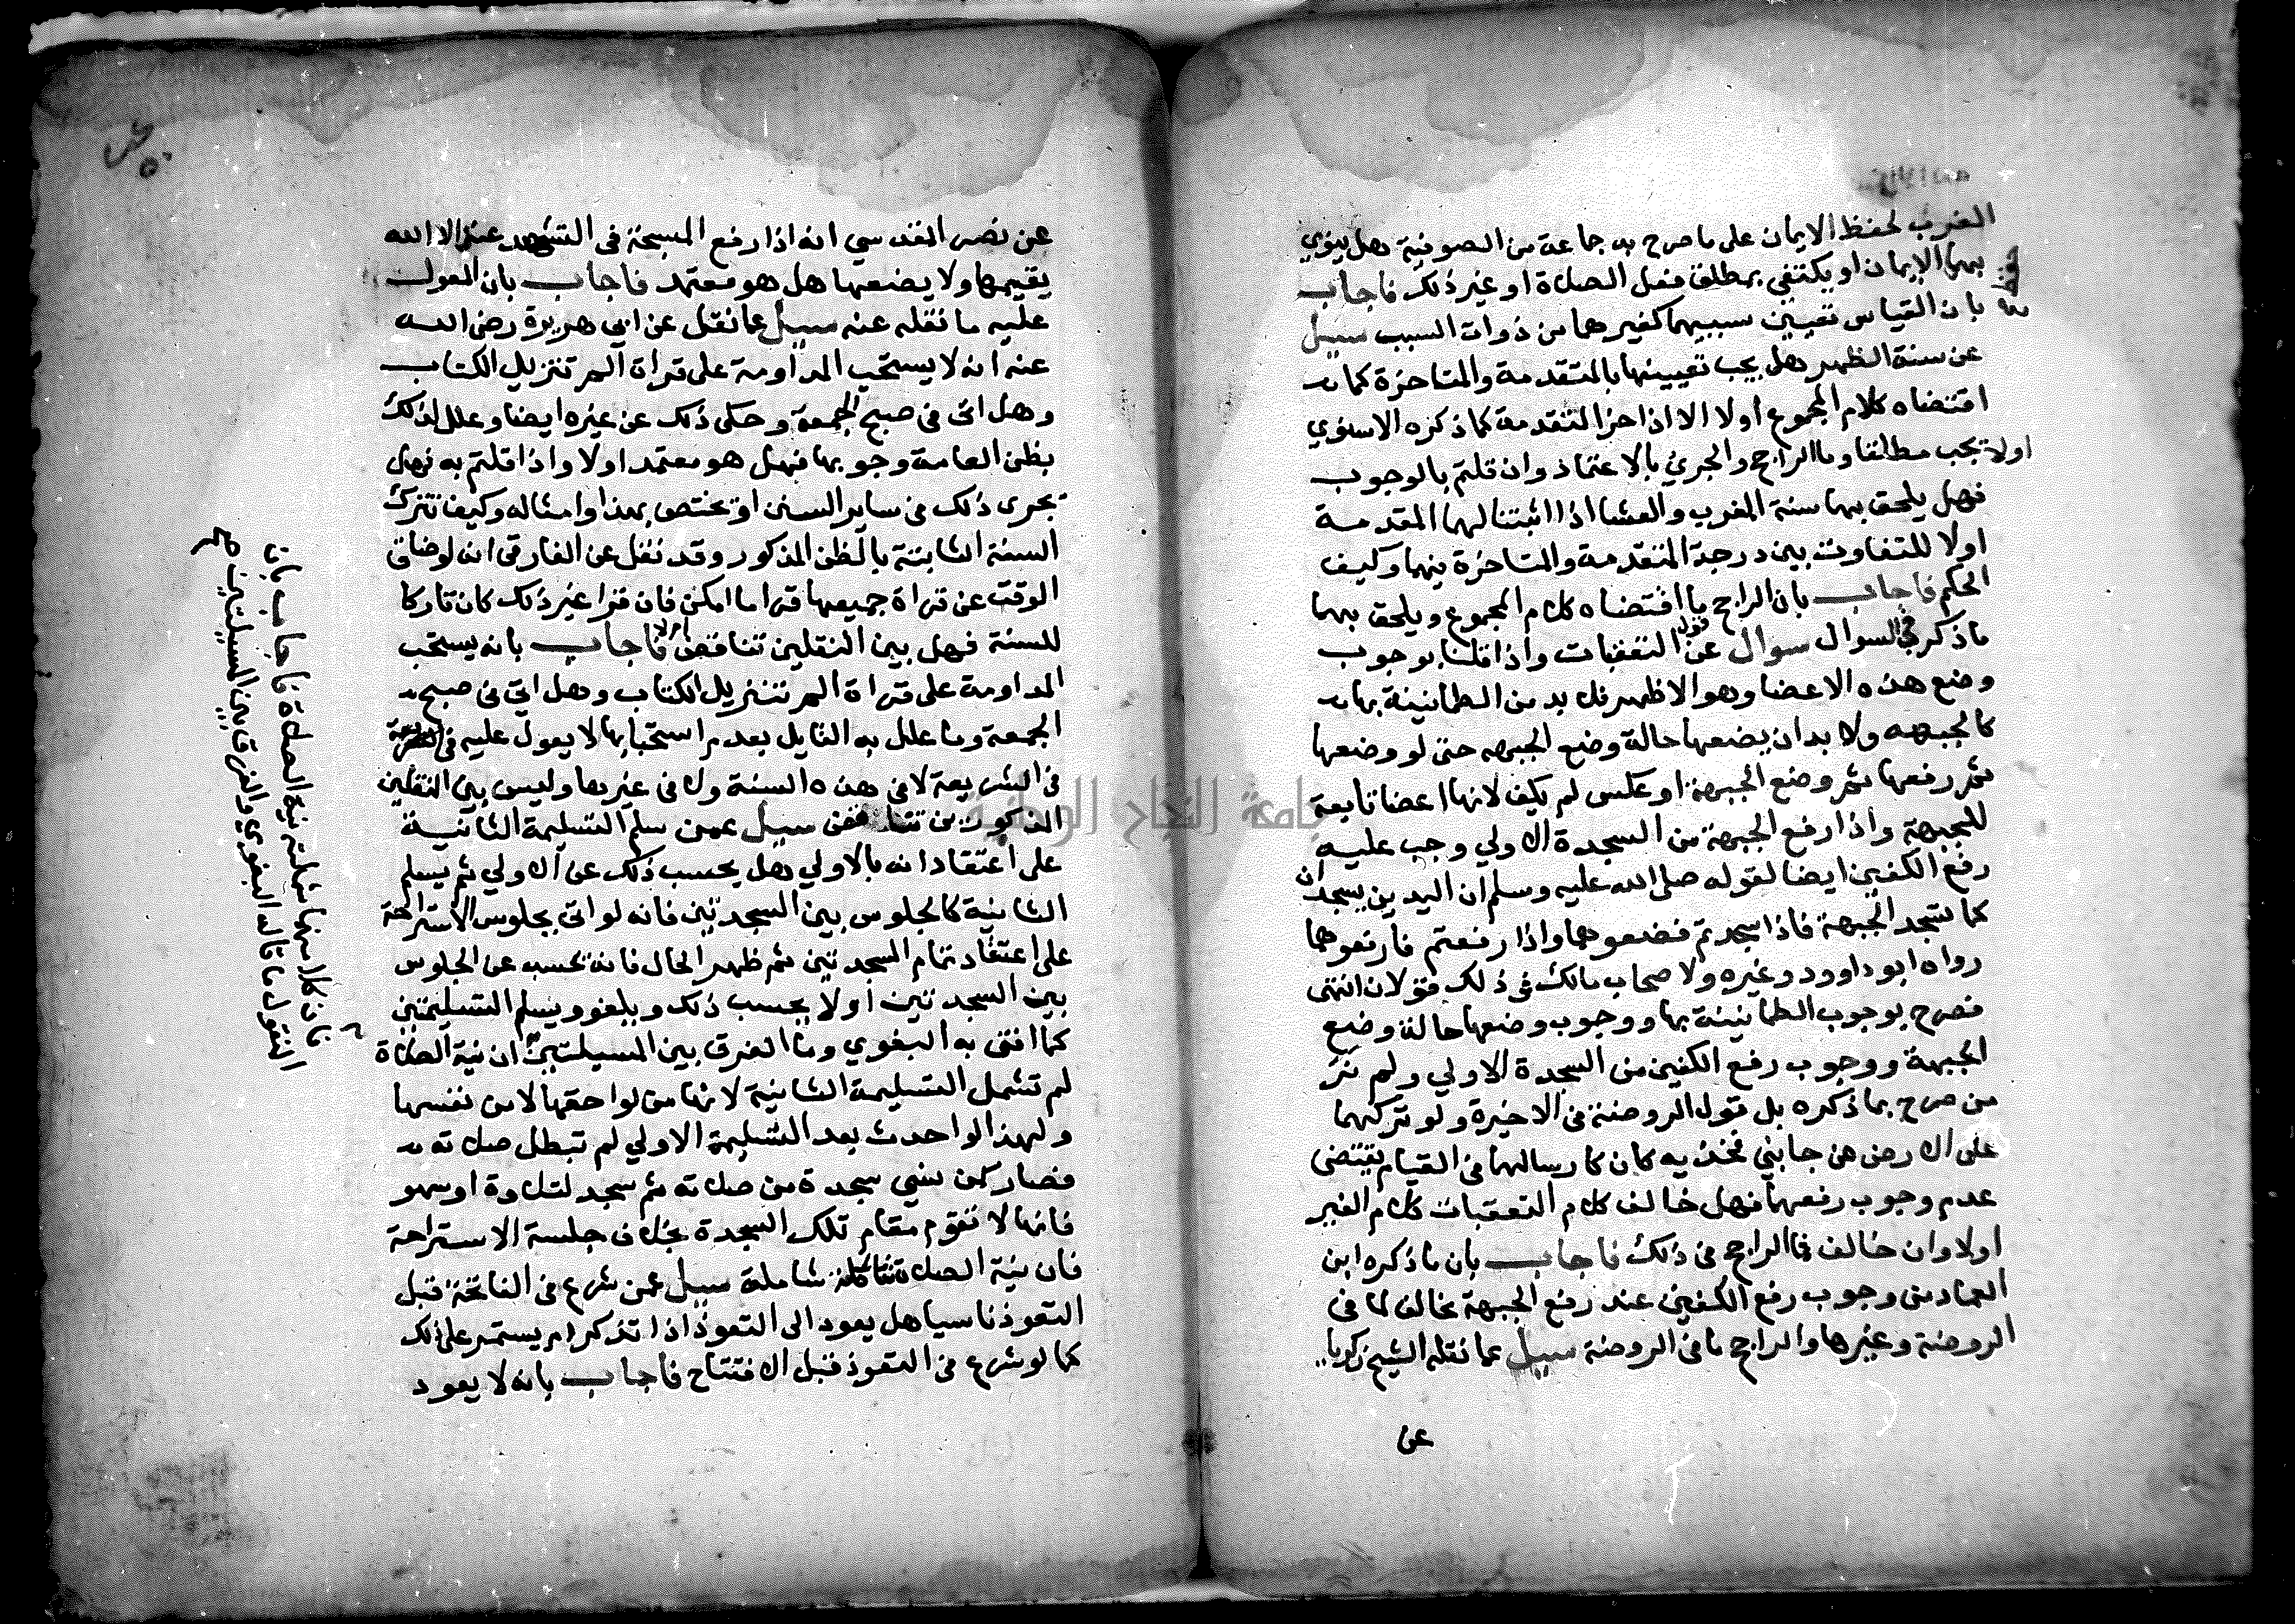 المغرب لحفظ الايمان على ما صرح به جماعة من الصوفية هل ينوي
بهما الايمان او يكتفي بمطلق فعل الصلاة او غير ذلك فاجاب
بان القياس تعيين سببهما كغيرهما من ذوات السبب سيل
عن سنة الظهر هل يجب تعيينها بالمتقدمة والمتاخرة كما
اقتضاه كلام المجموع اولا الا اذا اخر المتقدمة كما ذكره الاسنوي
اولا تجب مطلقا وما الراجح والحري بالاعتماد وان قلتم بالوجوب
فهل يلحق بها سنة المغرب والعشا اذا اثبتنا لهما المقدمة
اولا للتفاوت بين درجة المتقدمة والمتاخرة فيهما وكيف
الحكم فاجاب بان الراجح ما اقتضاه كلام المجموع ويلحق بهما
ما ذكر في السوال سوال عن قول التعقبات واذا قلنا بوجوب
وضع هذه الاعضا وهو الاظهر فلا بد من الطمانينة بها
كالجبهه ولا بد ان يضعها حالة وضع الجبهه حتى لو وضعها
ثم رفعها ثم وضع الجبهة او عكس لم يكف لانها اعضا تابعة
للجبهة واذا رفع الجبهة من السجدة الاولي وجب عليه
رفع الكفين ايضا لقوله صلى الله عليه وسلم ان اليدين يسجدان
كما تسجد الجبهة فاذا سجدتم فضعوهما واذا رفعتم فارفعوهما
رواه ابو داوود وغيره ولاصحاب مالك في ذلك قولان انتهى
فصرح بوجوب الطمانينة بها ووجوب وضعها حالة وضع
الجبهة ووجوب رفع الكفين من السجدة الاولي ولم نر
من صرح بما ذكره بل قول الروضة في الاخيرة ولو تركهما
على الارض من جانبي فخذيه كان كارسالهما في القيام يقتضي
عدم وجوب رفعهما فهل خالف كلام التعقبات كلام الغير
اولا وان خالف فما الراجح في ذلك فاجاب بان ما ذكره ابن
العماد من وجوب رفع الكفين عند رفع الجبهة مخالف لما في
الروضة وغيرها والراجح ما في الروضة سيل عما نقله الشيخ زكريا
عن
عن نصر المقدسي انه اذا رفع المسبحة في التشهد عند الا الله
يقيمها ولا يضعها هل هو معتمد فاجاب بان المعول
عليه ما نقله عنه سيل عما نقل عن ابي هريرة رضي الله
عنه انه لا يستحب المداومة على قراة الم تنزيل الكتاب
وهل اتى في صبح الجمعة وحكى ذلك عن غيره ايضا وعلل ذلك
بظن العامة وجوبها فهل هو معتمد اولا واذا قلتم به فهل
يجرى ذلك في ساير السنن او يختص بهذا وامثاله وكيف تترك
السنة الثابتة بالظن المذكور وقد نقل عن الفارقي انه لو ضاق
الوقت عن قراة جميعها قرا ما امكن فان قرا غير ذلك كان تاركا
للسنة فهل بين النقلين تناقض اولا فاجاب بانه يستحب
المداومة على قراة الم تنزيل الكتاب وهل اتى في صبح
الجمعة وما علل به القايل بعدم استحبابها لا يعول عليه
في الشريعة لا في هذه السنة ولا في غيرها وليس بين النقلين
المذكورين تناقض سيل عمن سلم التسليمة الثانية
على اعتقاد انه بالاولي هل يحسب ذلك عن الاولي ثم يسلم
الثانية كالجلوس بين السجدتين فانه لو اتى بجلوس الاستراحة
على اعتقاد تمام السجدتين ثم ظهر الحال فانه يحسب عن الجلوس
بين السجدتين اولا يحسب ذلك ويلغو ويسلم التسليمتين
كما افتى به البغوي وما الفرق بين المسيلتين ان نية الصلاة
لم تشمل التسليمة الثانية لانها من لواحقها لا من نفسها
ولهذا لو احدث بعد التسليمة الاولي لم تبطل صلاته
فصار كمن نسي سجدة من صلاته ثم سجد لتلاوة او سهو
فانها لا تقوم مقام تلك السجدة بخلاف جلسة الاستراحة
فان نية الصلاة شاملة سيل عمن شرع في الفاتحة قبل
التعوذ ناسيا هل يعود الى التعوذ اذا تذكر ام يستمر على ذلك
كما لو شرع في التعوذ قبل الافتتاح فاجاب بانه لا يعود
فان كلا منهما شملته نية الصلاة فاجاب بان
المنقول ما قاله البغوي والفرق بين المسيلتين صح
جامعة النجاح الوطنية